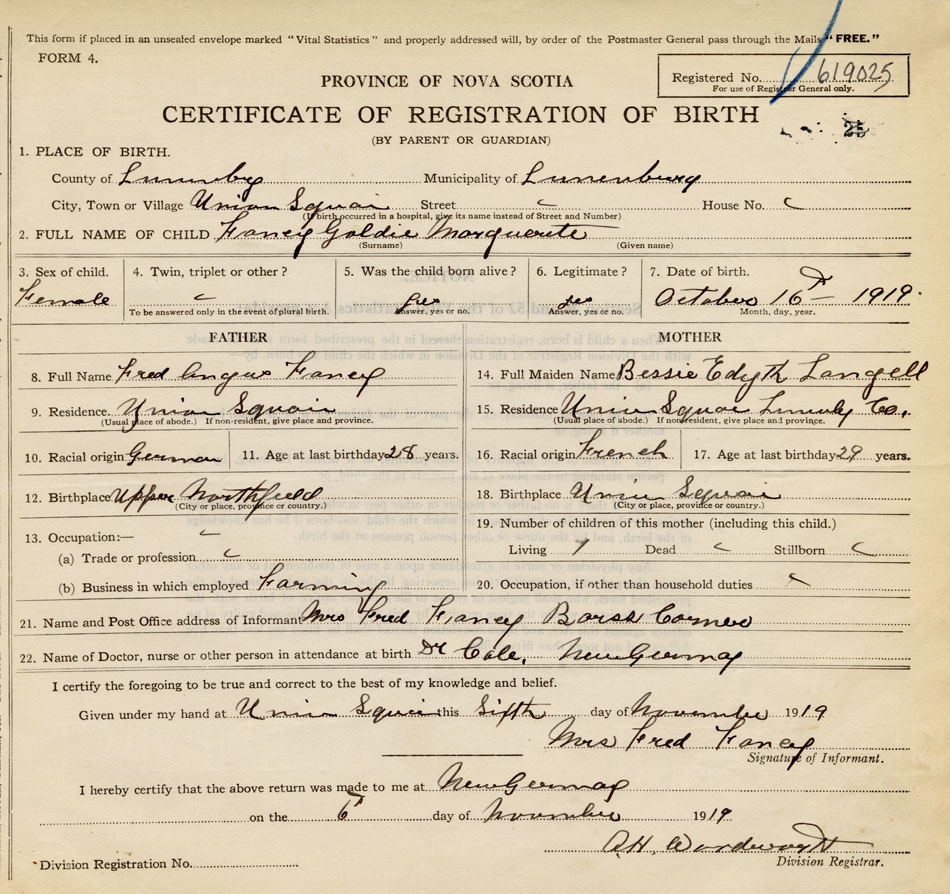 This form if placed in an unsealed envelope marked "Vital Statistics" and properly addressed will, by order of the Postmaster General pass through the Mails "FREE."
FORM 4.
PROVINCE OF NOVA SCOTIA
Registered No. 619025
For use of Registrar General only.
CERTIFICATE OF REGISTRATION OF BIRTH
25
(BY PARENT OR GUARDIAN)
1. PLACE OF BIRTH.
County of Lunenburg Municipality of Lunenburg
City, Town or Village Union Squair Street House No.
(If birth occurred in a hospital, give its name instead of Street and Number)
2. FULL NAME OF CHILD Fancy Goldie Marguerite
(Surname) (Given name)
3. Sex of child. 4. Twin, triplet or other? 5. Was the child born alive? 6. Legitimate? 7. Date of birth.
Female yes yes October 16th 1919.
To be answered only in the event of plural birth. Answer, yes or no. Answer, yes or no. Month, day, year.
FATHER MOTHER
8. Full Name Fred Angus Fancy 14. Full Maiden Name Bessie Edyth Langell
9. Residence. Union Squair 15. Residence Union Squair Co.
(Usual place of abode.) If non-resident, give place and province. (Usual place of abode.) If non-resident, give place and province.
10. Racial origin German 11. Age at last birthday 28 years. 16. Racial origin French 17. Age at last birthday 29 years.
12. Birthplace Upper Northfield 18. Birthplace Union Squair
(City or place, province or country.) (City or place, province or country.)
13. Occupation:— 19. Number of children of this mother (including this child.)
(a) Trade or profession Living Dead Stillborn
(b) Business in which employed Farming 20. Occupation, if other than household duties
21. Name and Post Office address of Informant Mrs Fred Fancy Barss Corner
22. Name of Doctor, nurse or other person in attendance at birth Dr Cole, New Germany
I certify the foregoing to be true and correct to the best of my knowledge and belief.
Given under my hand at Union Squair this Sifth day of November 1919
Mrs Fred Fancy
Signature of Informant.
I hereby certify that the above return was made to me at New Germany
on the 6th day of November 1919
A.H.
Division Registration No. Division Registrar.